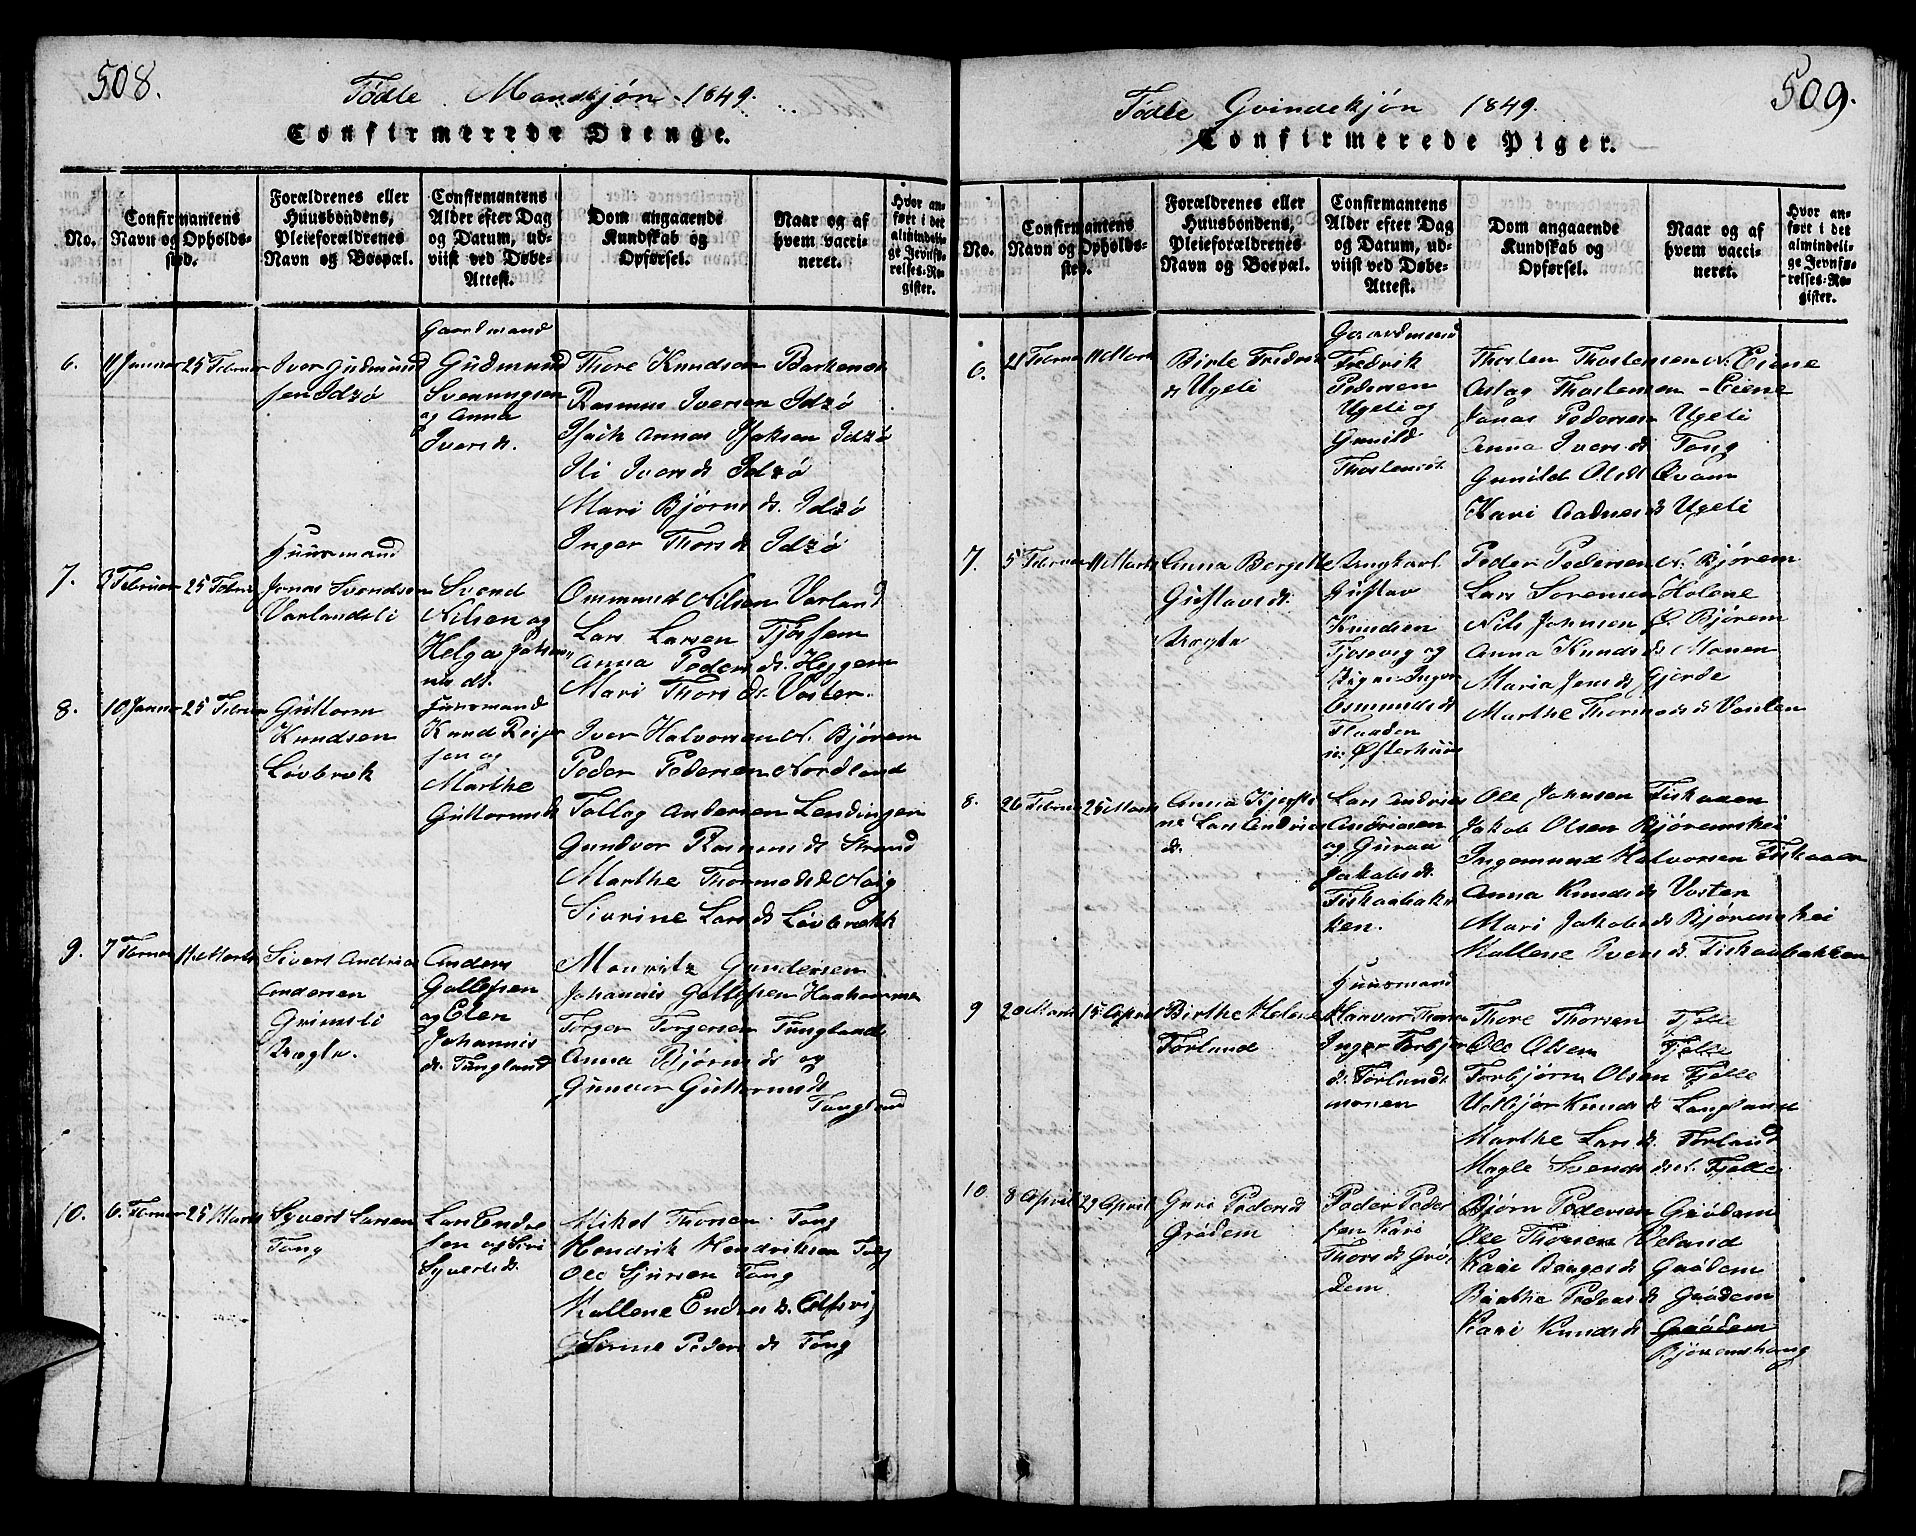 508.
Fødte Mandkjøn 1849.
Confirmerede Drenge.
No.
Confirmantens Navn og Opholds-sted.
Forældrenes eller Huusbondens, Pleieforældrenes Navn og Boepæl.
Confirmantens Alder efter Dag og Datum, ud-viist ved Døbe-Attest.
Dom angaaende Kundskab og Opførsel.
Naar og af hvem vacci-neret.
Hvor an-ført i det almindeli-ge Jevnfø-relses-Re-gister.
6. 11 Januar 25 Februar
Iver Gudmund
sen Idzø
Gaardmand
Gudmund
Svenungsen
og Anna
Iversd.
Thore Knudsen Barkenæs
Rasmus Iversen Idzø
Isach Annas Isaksen Idzø
Ili Iversd. Idzø
Mari Bjørnsd. Idzø
Inger Thorsd. Idzø
7. 3 Februar 25 Februar
Jonas Svendsen
Varlandsli
Huusmand
Svend
Nilsen og
Helga Johan
nesd.
Ommund Nilsen Varland
Lars Larsen Tjøssem
Anna Pedersd. Heggem
Mari Thorsd. Voster
8. 10 Januar 25 Februar
Guttorm
Knudsen
Løvbrek
Huusmand
Knud Reier
sen og
Marthe
Guttormsd.
Iver Halvorsen N. Bjørem
Peder Pedersen Nordland
Tollag Andersen Lendingen
Gundvor Rasmusd. Strand
Marthe Thormodsd. Haig
Sivrine Larsd. Løvbrækk
9. 7 Februar 11 Marts
Sivert Andreas
Andersen
Grimsli
Uægte.
Anders
Gallefsen
og Elen
Johannis
d. Tungland
Mauritz Gundersen
Johannis Gallefsen Haahammer
Torger Torgersen Tungland
Anna Bjørnsd. og
Gunvor Guttormsd.
Tungland
10. 6. Februar 25 Marts
Syvert Larsen
Tong
Lars Endre
sen og Siri
Syvertsd.
Mikel Thorsen Tong
Hendrik Hendriksen Tong
Ole Sjursen Tong
Mallene Endresd. Alfsvig
Serine Pedersd. Tong
509.
Fødte Qvindekjøn 1849.
Confirmerede Piger.
No.
Confirmantens Navn og Opholds-sted.
Forældrenes eller Huusbondens, Pleieforældrenes Navn og Boepæl.
Confirmantens Alder efter Dag og Datum, ud-viist ved Døbe-Attest.
Dom angaaende Kundskab og Opførsel.
Naar og af hvem vacci-neret.
Hvor an-ført i det almindeli-ge Jevnfø-relses-Re-gister.
6. 21 Februar 11 Marts
Birte Fredriks
d. Ugeli
Gaardmand
Fredrik
Pedersen
Ugeli og
Gunild
Thostensd.
Thosten Thostensen N. Eiene
Aslag Thostensen - Eiene
Jonas Pedersen Ugeli
Anna Iversd. Tong
Gunild Olsd. Qvam
Kari Aadnesd. Ugeli
7. 5 Februar 11 Marts
Anna Bergitte
Gustavsd.
Uægte
Ungkarl
Gustav
Knudsen
Tjosevig og
Pigen Inger
Osmundsd.
Flaaden
n. Østerhuus
Peder Pedersen N. Bjørem
Lars Sørensen Helene
Nils Johnsen Ø. Bjørem
Anna Knudsd. Monen
Maria Jensd. Gjerde
Marthe Thormodsd. Vosten
8. 26 Februar 25 Marts
Anna Kjersti
ne Lars Andrias
d.
Lars Andrias
Andriasen
og Guraa
Jakobsd.
Fiskaabak
ken.
Ole Johnsen Fiskaaen
Jakob Olsen Bjøremshei
Ingemund Halvorsen Fiskaaen
Anna Knudsd. Vosten
Mari Jakobsd. Bjøremshei
Mallene Iversd. Fiskaabakken
9 20 Marts 15 April
Birthe Helene
Førland
Huusmand
Haavar Thorsen
Inger Torbjør
d. Førlands
monen
Thore Thorsen Fjelle
Ole Olsen Fjelle
Torbjørn Olsen Fjelle
Udbjør Knudsd. Langland
Marthe Larsd. Førland
Magle Svendsd. N. Fjelle
10. 8 April 29 April
Guri Pedersd.
Grødem
Peder Peder
sen Kari
Thorsd. Grø
dem
Bjørn Pedersen Grødem
Ole Thorsen Veland
Kari Børgesd. Grødem
Birthe Pedersd. Grødem
Kari Knudsd. Grødem
Bjøremshaug